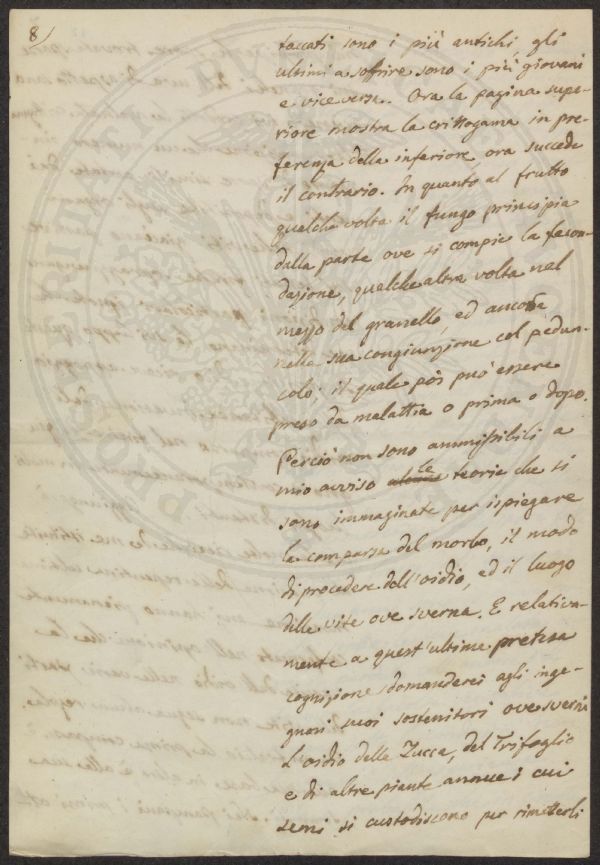 8/
taccati sono i più antichi, gli
ultimi a soffrire sono i più giovani
e viceversa. Ora la pagina supe-
riore mostra la crittogama in pre-
ferenza della inferiore, ora succede
il contrario. In quanto al frutto
qualche volta il fungo principia
dalla parte ove si compie la fecon-
dazione, qualche altra volta nel
mezzo del granello, ed ancora
nella sua congiunzione col pedun-
colo; il quale poi può essere
preso da malattia o prima o dopo.
Perciò non sono ammissibili a
mio avviso le teorie che si
sono immaginate per ispiegare
la comparsa del morbo, il modo
di procedere dell'oidio, ed il luogo
delle vite ove sverna. E relativa-
mente a quest'ultima pretesa
cognizione domanderei agli inge-
gnosi suoi sostenitori ove sverni
L'oidio della Zucca, del Trifoglio
e di altre piante annue i cui
semi si custodiscono per rimetterli